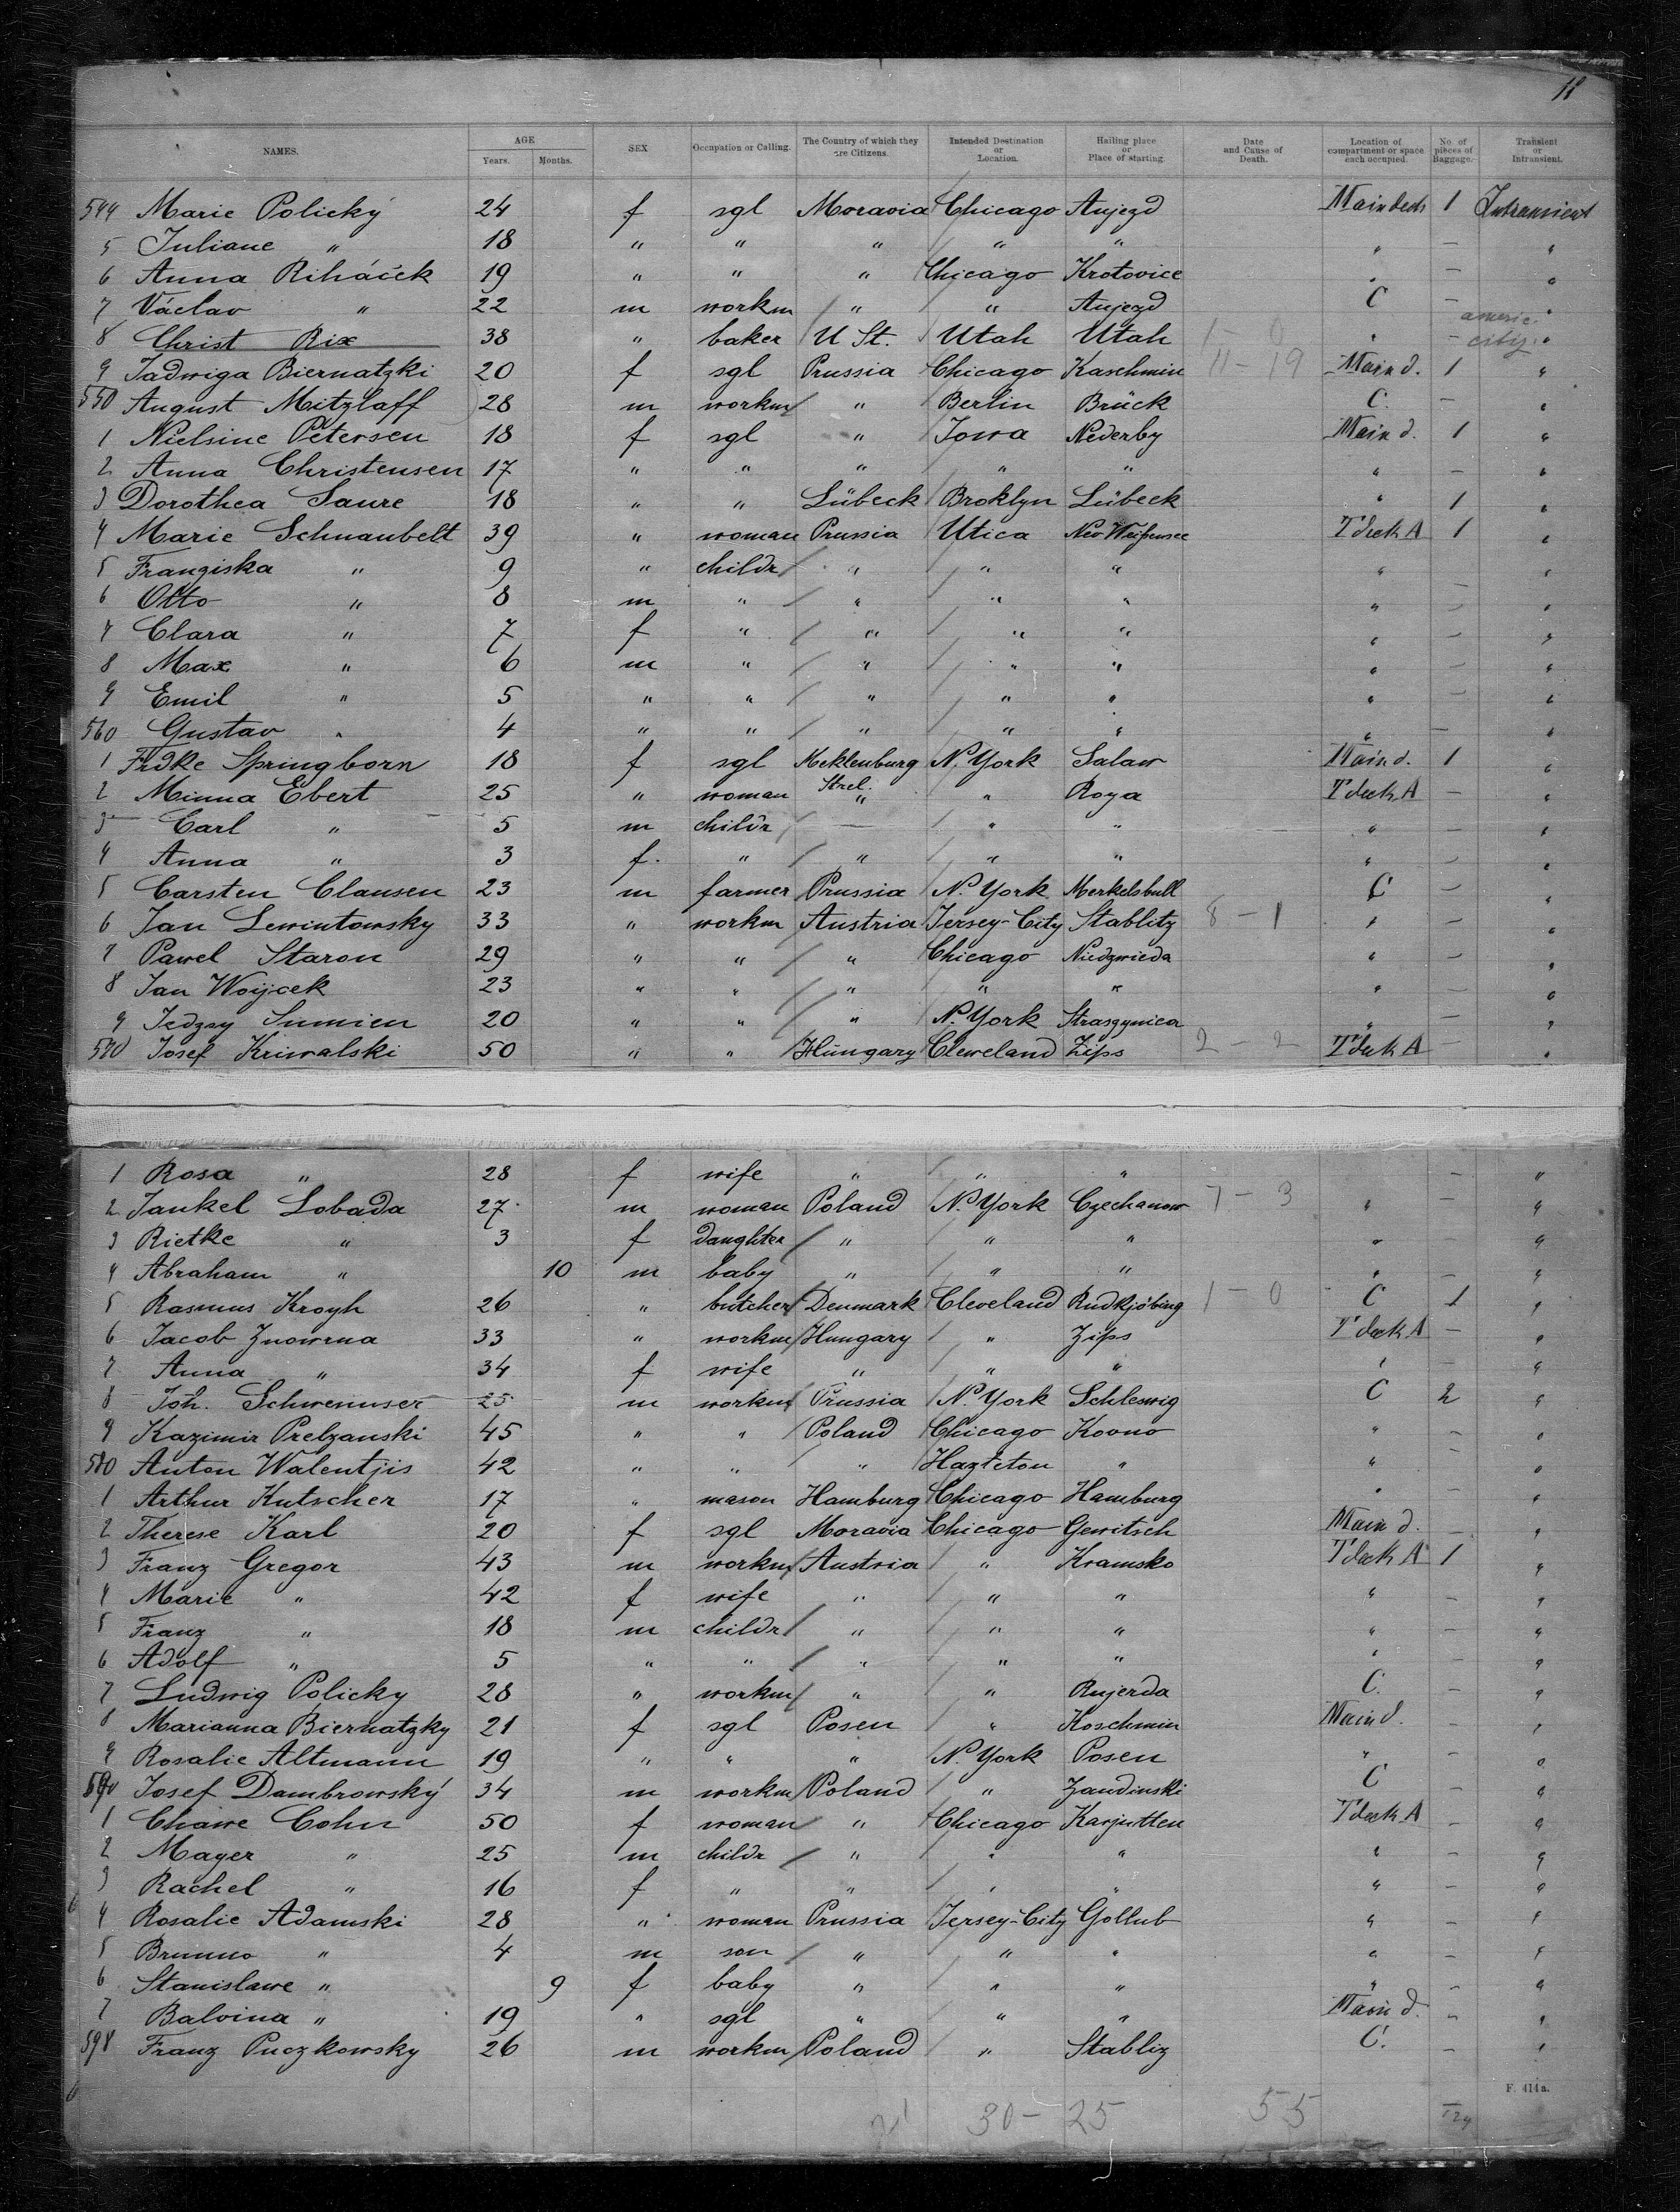 18
NAMES. AGE Years. Months. SEX Occupation or Calling. The Country of which they are Citizens. Intended Destination or Location. Hailing place or Place of starting. Date and Cause of Death. Location of compartment or space each occupied. No. of pieces of Baggage. Transient or Intransient.
544 Marie Polický 24 f sgl Moravia Chicago Aujezd Maindeck 1 Intransient
5 Juliane " 18 " " " " " " – "
6 Anna Riháček 19 " " " Chicago Krotovice " – "
7 Václav " 22 m workm " " Aujezd C – "
8 Christ Rix 38 " baker U St. Utah Utah 1 – 0 " – americ. citiz. "
9 Jadwiga Biernatzki 20 f sgl Prussia Chicago Kaschmin 11 – 19 Main d. 1 "
550 August Mitzlaff 28 m workm " Berlin Brück C. – "
1 Nielsine Petersen 18 f sgl " Iowa Nederby Main d. 1 "
2 Anna Christensen 17 " " " " " " – "
3 Dorothea Saure 18 " " Lübeck Broklyn Lübeck " 1 "
4 Marie Schnaubelt 39 " woman Prussia Utica Neu Weißensee T deck A 1 "
5 Franziska " 9 " childr " " " " "
6 Otto " 8 m " " " " " – "
7 Clara " 7 f " " " " " – "
8 Max " 6 m " " " " " – "
9 Emil " 5 " " " " " " – "
560 Gustav " 4 " " " " " " – "
1 Frdke Springborn 18 f sgl Meklenburg N. York Salaw Main d. 1 "
2 Minna Ebert 25 " woman Strel. " " Roga T deck A – "
3 Carl " 5 m childr – " " " – "
4 Anna " 3 f. " " " " " – "
5 Carsten Clausen 23 m farmer Prussia N. York Merkelsbull C – "
6 Jan Lewintowsky 33 " workm Austria Jersey-City Stablitz 8 – 1 " – "
7 Pawel Staron 29 " " " Chicago Niedzwieda " – "
8 Jan Woijcek 23 " " " " " " "
9 Jedzey Sumien 20 " " " N. York Straszynica " – "
570 Josef Kriwalski 50 " " Hungary Cleweland Zips 2 – 2 T deck A – "
1 Rosa " 28 f wife " " " – "
2 Jankel Lobada 27 m woman Poland N. York Czechanow 7 – 3 " – "
3 Rietke " 3 f daughter " " " " "
4 Abraham " 10 m baby " " " " – "
5 Rasmus Krogh 26 " butcher Denmark Cleveland Rudkjöbing 1 – 0 C 1 "
6 Jacob Znowrna 33 " workm Hungary " Zips T deck A – "
7 Anna " 34 f wife " " " " "
8 Joh. Schwennser 25 m workm Prussia N. York Schleswig C 2 "
9 Kazimir Prelzanski 45 " " Poland Chicago Kovno " – "
580 Anton Walentjis 42 " " " Hazteton " " – "
1 Arthur Kutscher 17 " mason Hamburg Chicago Hamburg " – "
2 Therese Karl 20 f sgl Moravia Chicago Gewitsch Main d. – "
3 Franz Gregor 43 m workm Austria " Kramsko T deck A 1 "
4 Marie " 42 f wife " " " " – "
5 Franz " 18 m childr " " " " – "
6 Adolf " 5 " " " " " " "
7 Ludwig Policky 28 " workm " " Rujerda C. – "
8 Marianna Biernatzky 21 f sgl Posen " Koschmin Main d. – "
9 Rosalie Altmann 19 " " " N. York Posen " – "
590 Josef Dambrowský 34 m workm Poland " Zandinski C – "
1 Chawe Cohn 50 f woman " Chicago Karjutten T deck A – "
2 Mayer " 25 m childr " " " " – "
3 Rachel " 16 f " " " " " – "
4 Rosalie Adamski 28 " woman Prussia Jersey-City Gollub " – "
5 Brunno " 4 m son " " " " – "
6 Stanislawe " 9 f baby " " " " – "
7 Balvina " 19 " sgl " " " Main d. – "
598 Franz Puczkowsky 26 m workm Poland " Stabliz C. – "
F. 414a.
30 – 25 55